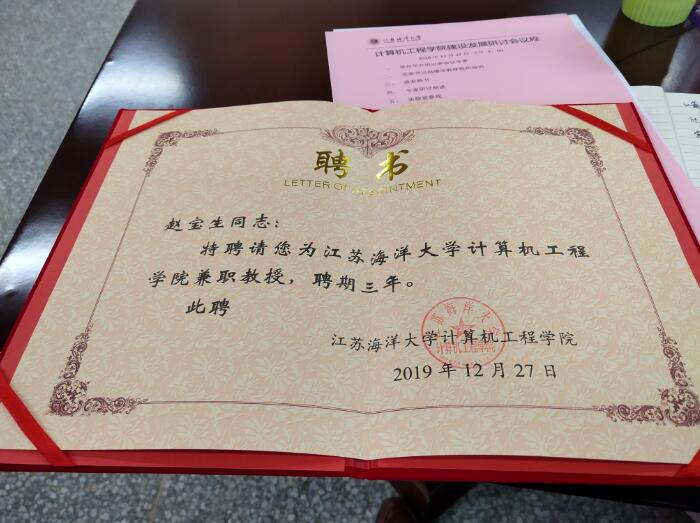 江苏海洋大学
计算机工程学院建设发展研讨会议程
聘书
LETTER OF APPOINTMENT
赵宝生同志：
特聘请您为江苏海洋大学计算机工程
学院兼职教授，聘期三年。
此聘
江苏海洋大学计算机工程学院
2019年12月27日
江苏海洋大学
计算机工程学院